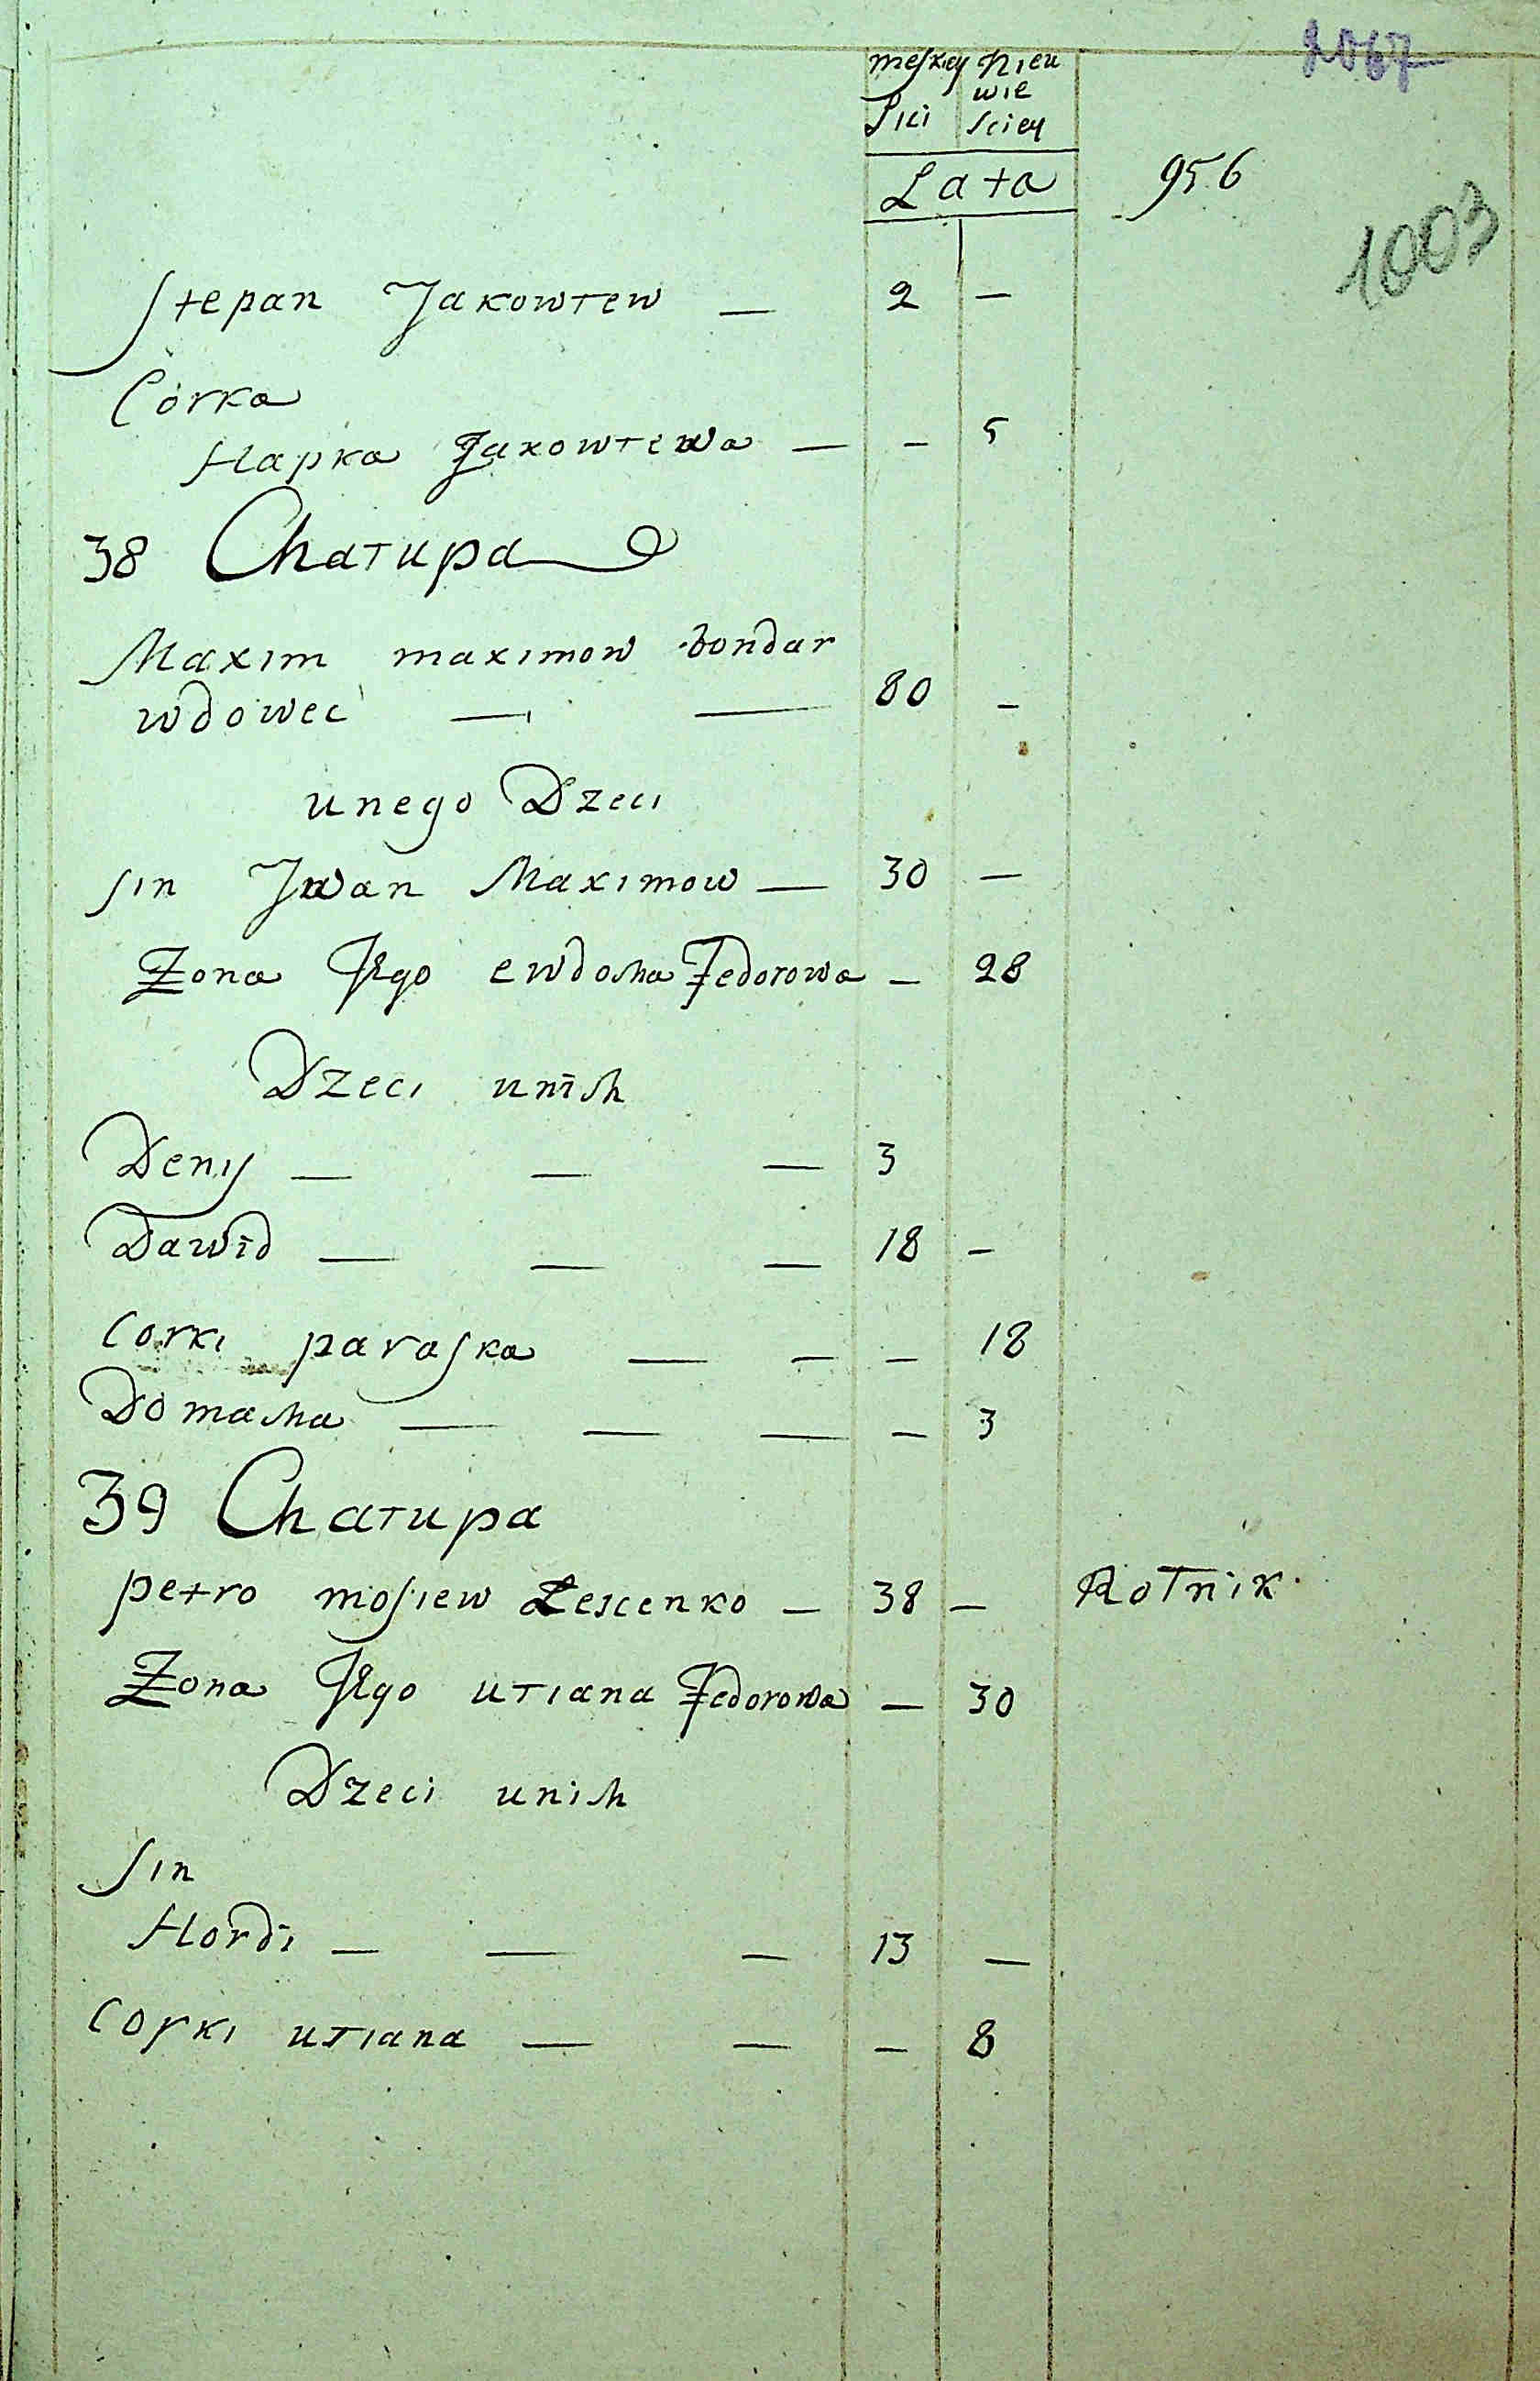 2067
meskiey Nieu
wie
Plci sciey
Lata
956
1003
Stepan Jakowlew — 2 —
Córka
Hapka Jakowlewa — — 5
38 Chałupa
Maxim maximow bondar
wdowec — — 80 —
unego Dzeci
sin Jwan Maximow — 30 —
Zona Jego ewdokia Fedorowa — 28
Dzeci unih
Denis — — — 3
Dawid — — — 18 —
Corki paraska — — — 18
Domaha — — — — 3
39 Chałupa
petro mosiew Lescenko — 38 — Rolnik
Zona Jego uliana Fedorowa — 30
Dzeci unih
Sin
Hordi — — — 13 —
Corki uliana — — — 8